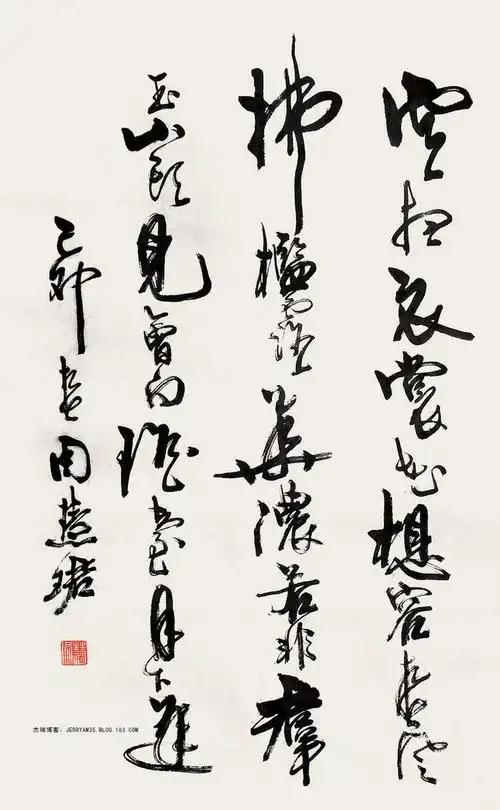 雲想衣裳花想容春風
拂檻露華濃若非羣
玉山頭見會向瑶臺月下逢
己卯春周慧珺
杰瑞博客：JERRYAM35.BLOG.163.COM